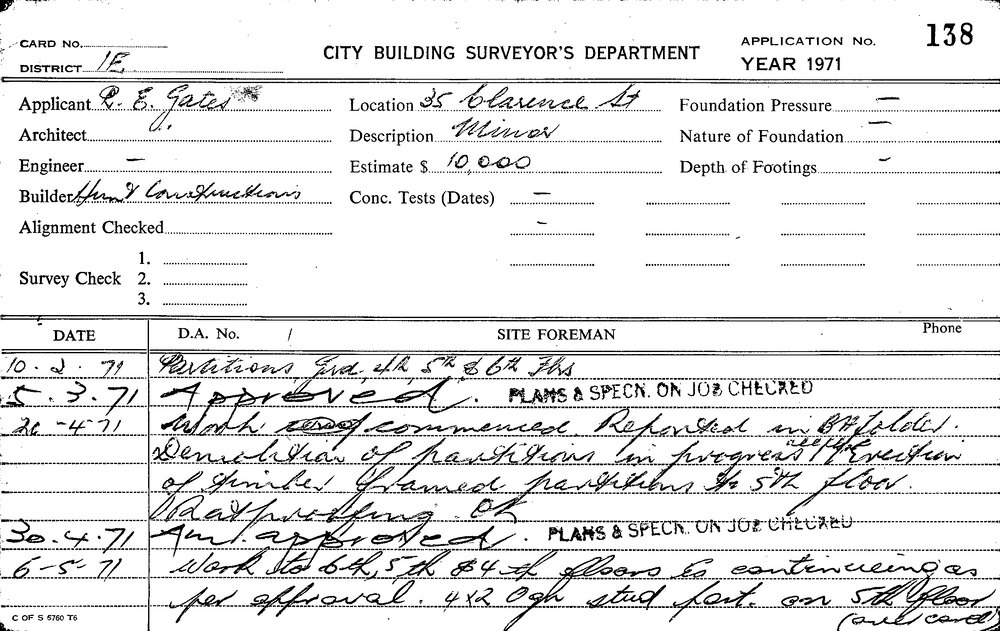 138
CARD No.
CITY BUILDING SURVEYOR'S DEPARTMENT
APPLICATION No.
DISTRICT 1E
YEAR 1971
Applicant R. E. Gates Location 35 Clarence St Foundation Pressure —
Architect Description Minor Nature of Foundation —
Engineer — Estimate $ 10,000 Depth of Footings -
Builder Hunt Constructions Conc. Tests (Dates) —
Alignment Checked -
1.
Survey Check 2.
3.
DATE D.A. No. / SITE FOREMAN Phone
10. 2. 71 Partitions, Grd, 4th, 5th & 6th Flrs
5. 3. 71 Approved. PLANS & SPECN. ON JOB CHECKED
-4-71 Work commenced. Reported in folder.
Demolition of partitions in progress erection
of timber framed partitions to 5th floor.
Ratproofing OK
30.4.71 Am. approved. PLANS & SPECN. ON JOB CHECKED
6-5-71 Work to 6th, 5th & 4th floors is continueing as
per approval. 4x2 Ogn stud part. on 5th floor
(over card)
C OF S 5760 T6